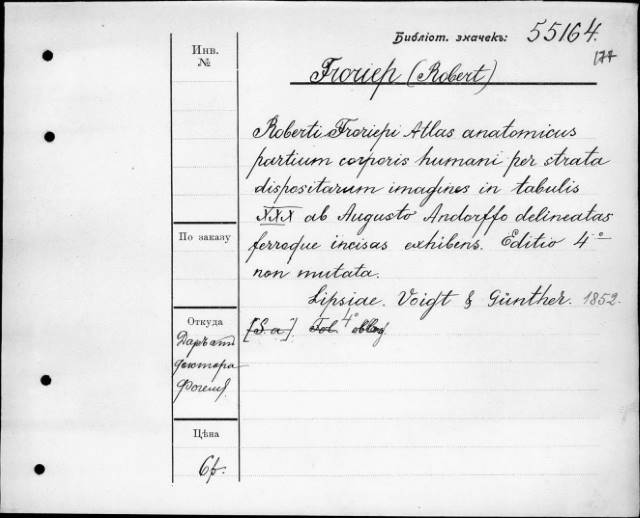 Библіот. значекъ: 55164.
Инв.
№
Froriep (Robert)
Roberti Froriepi Atlas anatomicus
partium corporis humani per strata
dispositarum imagines in tabulis
XXX ab Augusto Andorffo delineatas
По заказу
ferroque incisas exhibens. Editio 4º
non mutata.
Lipsiae. Voigt & Günther. 1852.
Откуда
[S. a]. Fol. 4º oblong
Даръ отъ
доктора
Цѣна
6 р.